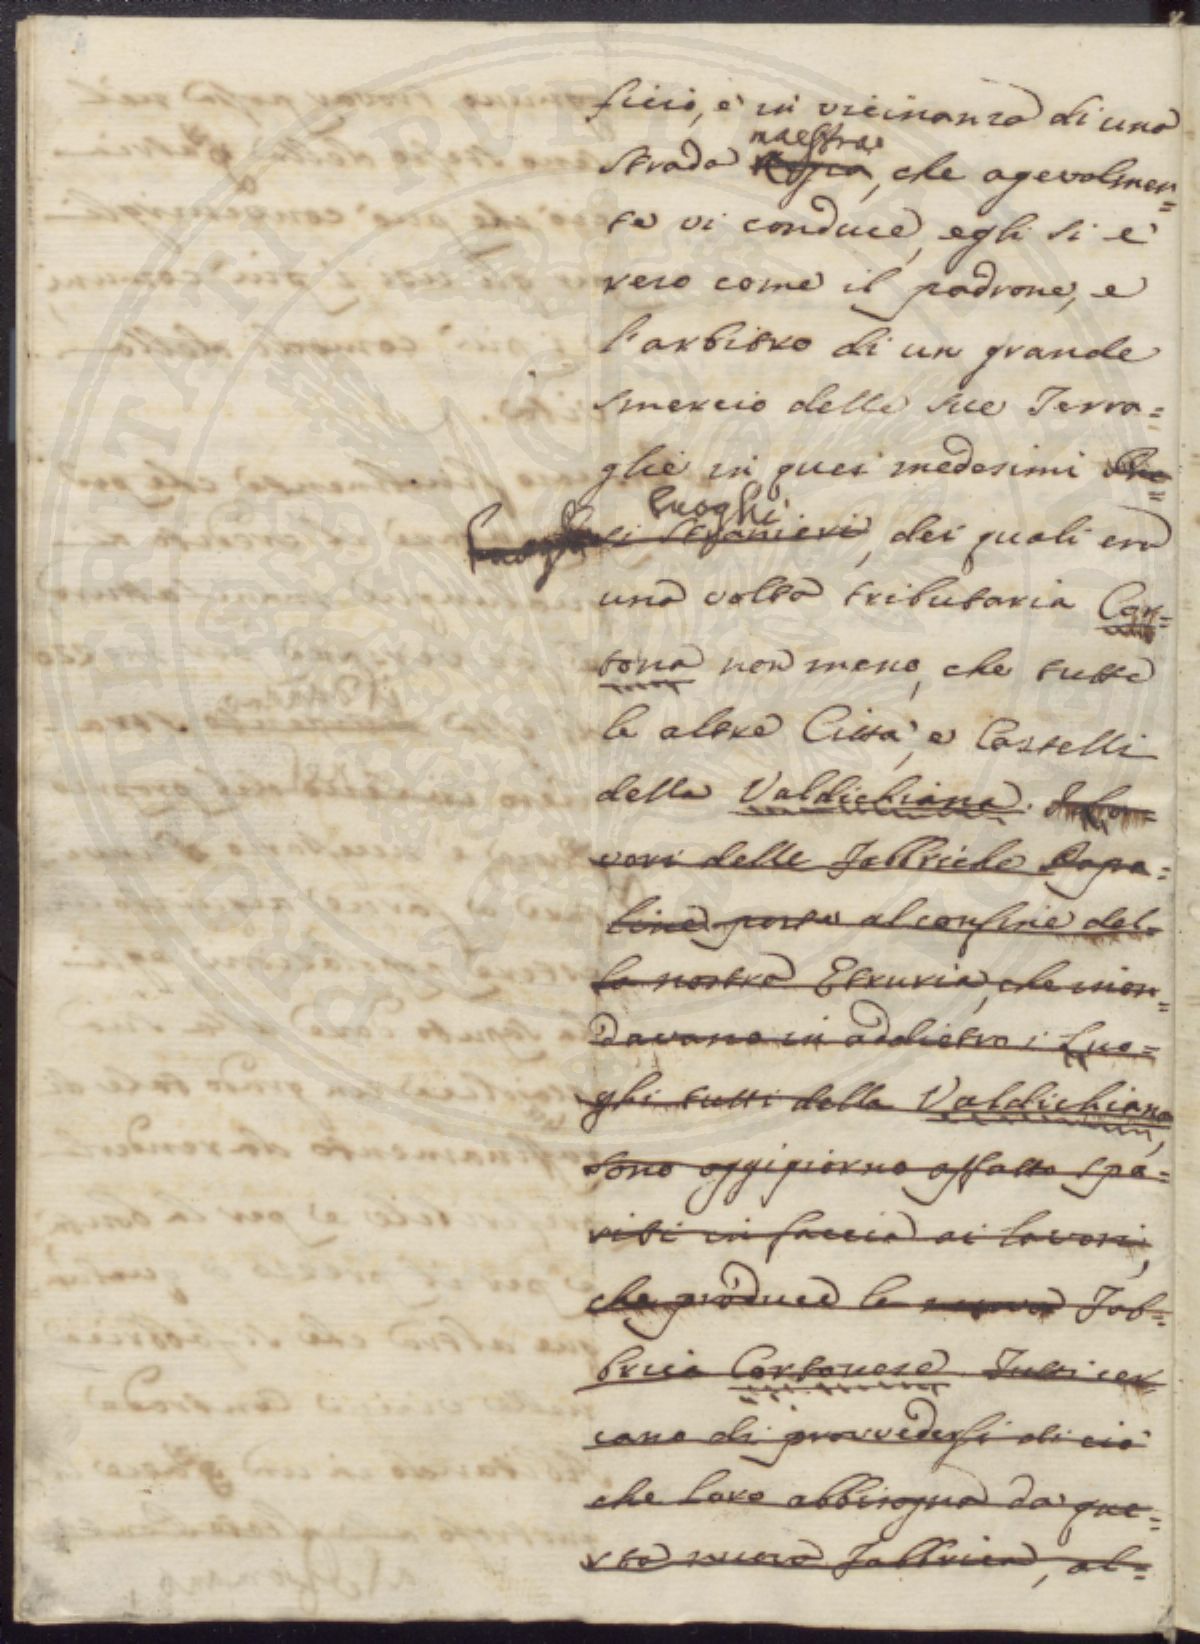 ficio, e in vicinanza di una
maestra
strada Regia, che agevolmen=
te vi conduce, egli si è
reso come il padrone, e
l'arbitro di un grande
smercio delle sue Terra=
glie in quei medesimi Pae=
luoghi
si stranieri, dei quali era
una volta tributaria Cor=
tona non meno, che tutte
le altre Città, e Castelli
della Valdichiana. I la=
vori delle Fabbriche Papa=
line poste al confine del=
la nostra Etruria, che inon=
davano in addietro i Luo=
ghi tutti della Valdichiana,
sono oggigiorno affatto spa=
riti in faccia ai lavori,
che produce la nuova Fab=
brica Cortonese. Tutti cer=
cano di provvedersi di ciò
che loro abbisogna da que=
sta nuova Fabbrica, al=